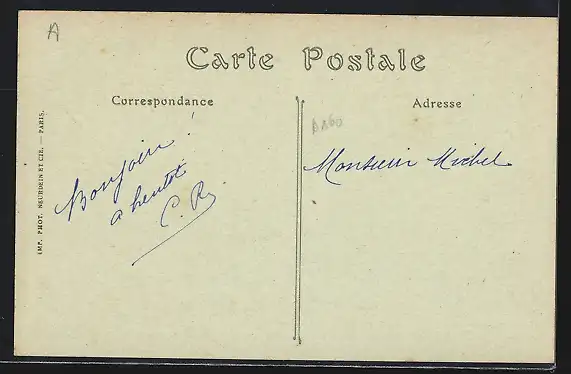 A
Carte Postale
Correspondance
Adresse
Bonjour !
a bientot
C. R
Monsieur Michel
IMP. PHOT. NEURDEIN ET CIE. — PARIS.